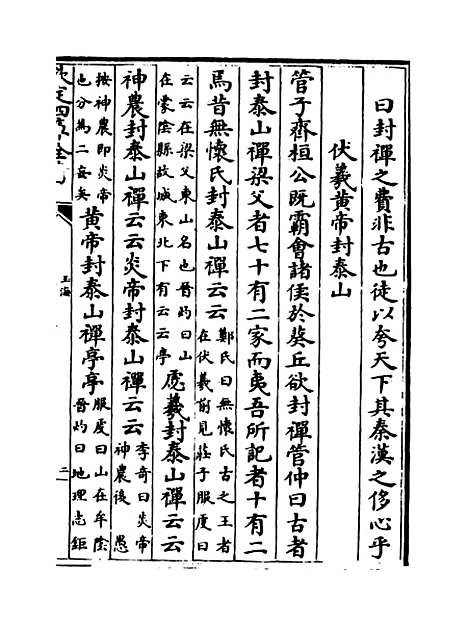 曰封禪之費非古也徒以夸天下其秦漢之侈心乎
伏羲黄帝封泰山
管子齊桓公既霸會諸侯於葵丘欲封禪管仲曰古者
封泰山禪梁父者七十有二家而夷吾所記者十有二
焉昔無懷氏封泰山禪云云
鄭氏曰無懷氏古之王者
在伏羲前見莊子服䖍曰
云云在梁父東山名也晉灼曰山
在蒙隂縣故城東北下有云云亭
虙羲封泰山禪云云
神農封泰山禪云云炎帝封泰山禪云云
李奇曰炎帝
神農後 愚
按神農即炎帝
也分為二妄矣
黄帝封泰山禪亭亭
服䖍曰山在牟隂
晉灼曰地理志鉅
欽定四庫全書
玉海
二